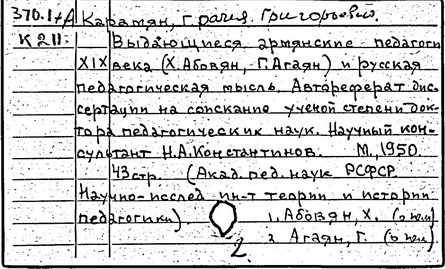 370.1+А Карамян, Грачия Григорьевич.
К 211: Выдающиеся армянские педагоги
XIX века (Х. Абовян, Г. Агаян) и русская
педагогическая мысль. Автореферат дис-
сертации на соискание ученой степени док-
тора педагогических наук. Научный кон-
сультант Н.А. Константинов. М., 1950.
43 стр. (Акад. пед. наук РСФСР.
Научно-исслед. ин-т теории и истории
педагогики) 1. Абовян, Х. (о нем).
2. Агаян, Г. (о нем).
2.